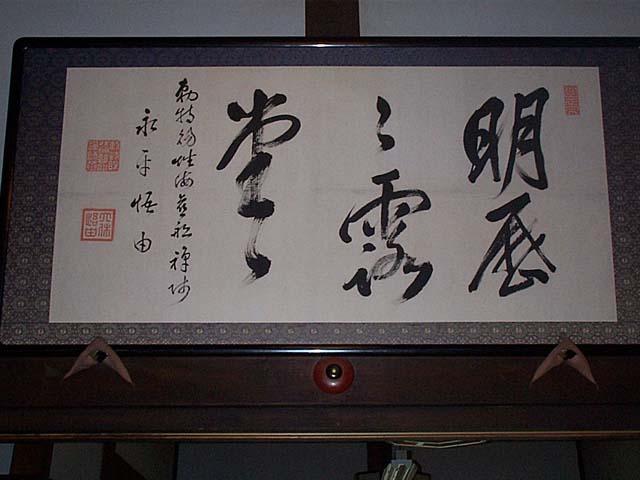 明歴
々露
堂々
勅特賜性海慈船禅師
永平悟由